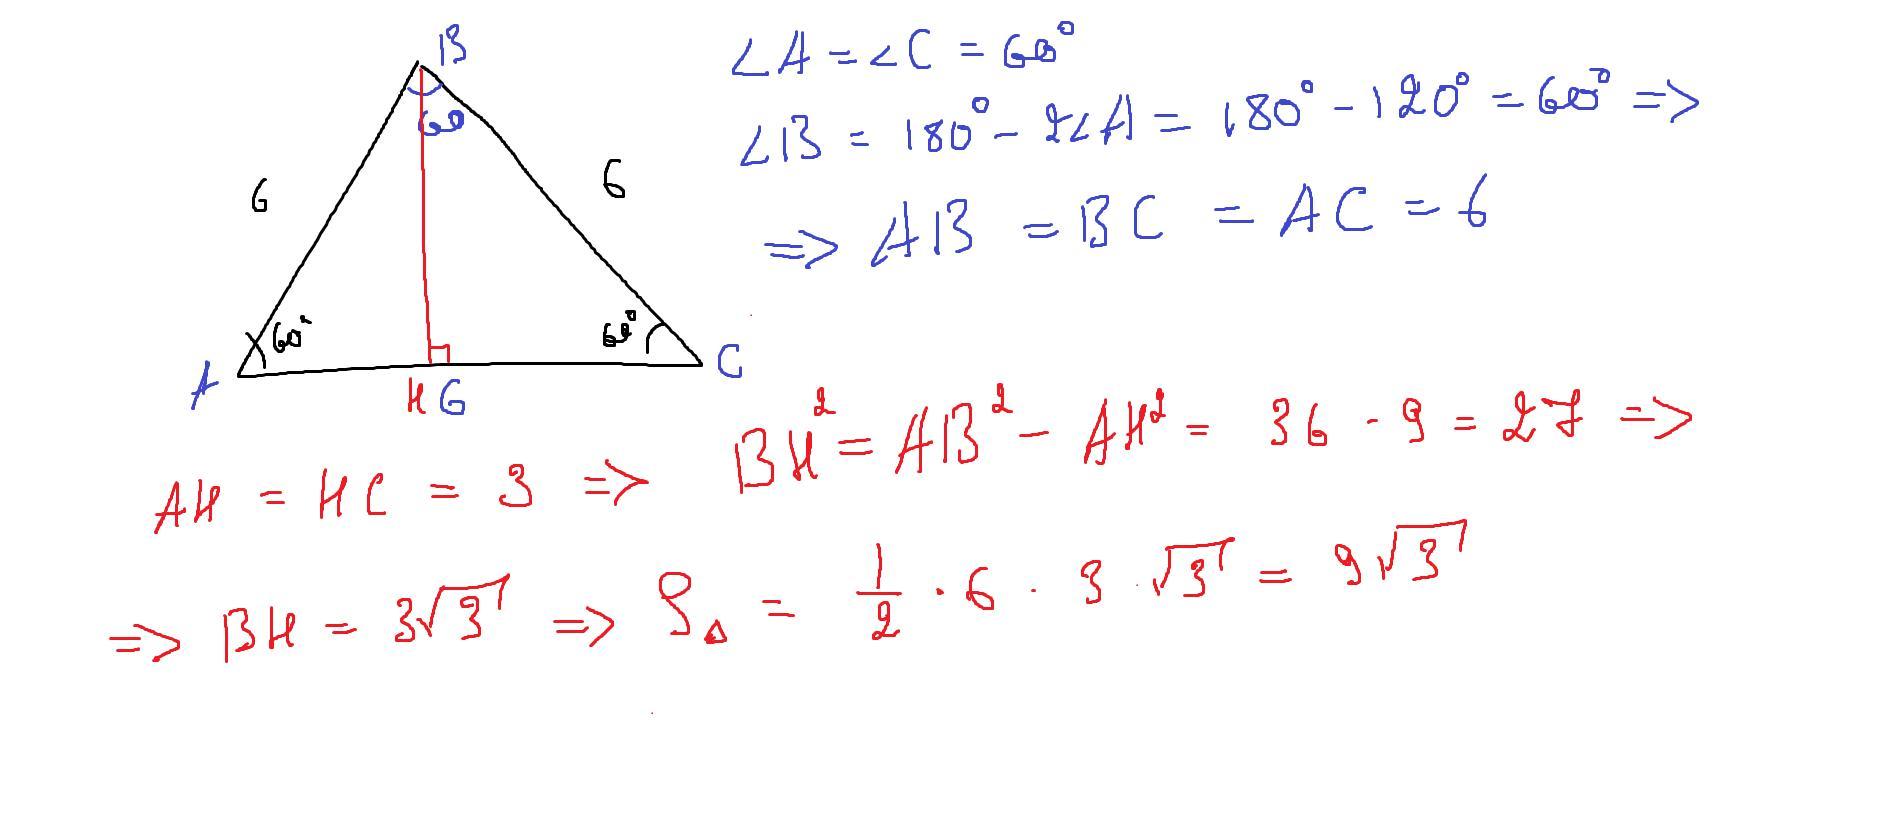 B
60
6
6
60°
60°
A
H 6
C
∠A = ∠C = 60°
∠B = 180° - 2∠A = 180° - 120° = 60° =>
=> AB = BC = AC = 6
AH = HC = 3 => BH² = AB² - AH² = 36 - 9 = 27 =>
=> BH = 3√3 => S△ = 1/2 · 6 · 3 · √3 = 9√3